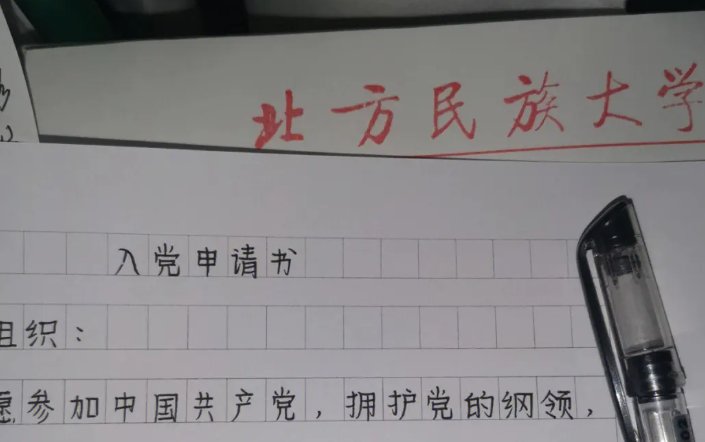 北方民族大学
入党申请书
组织：
愿参加中国共产党，拥护党的纲领，